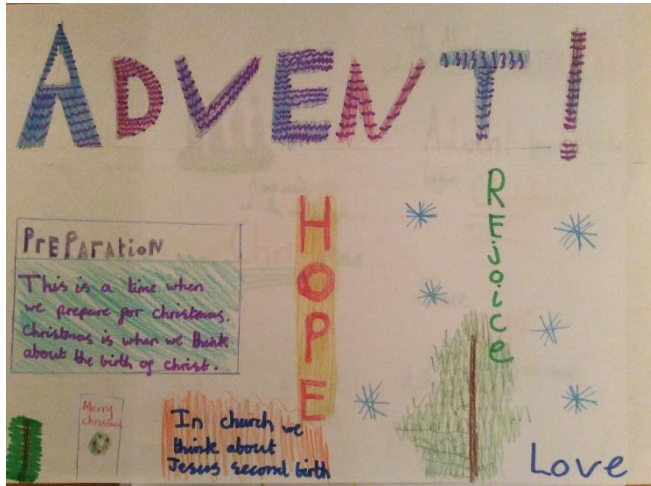 ADVENT!
PrEParatioN
This is a time when
we prepare for christmas.
Christmas is when we think
about the birth of christ.
HOPE
REjoice
Merry
In church we
think about
Jesus second birth
Love